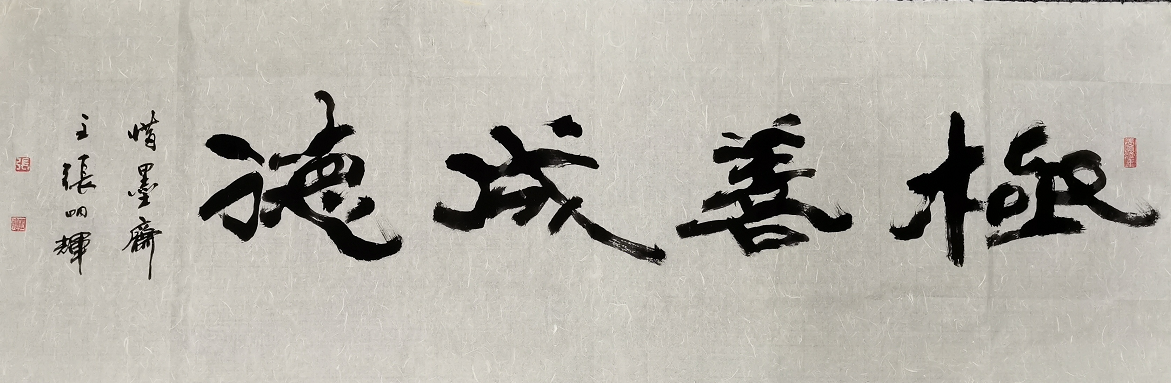 極善成德
惜墨齋
主張明輝
張